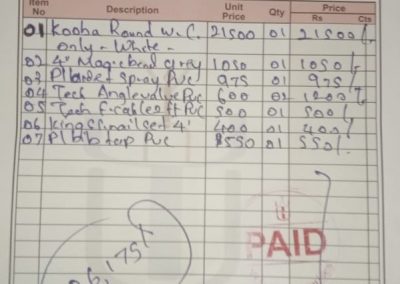 Item No Description Unit Price Qty Price Rs Cts
01 Kooba Round W.C. 21500 01 21500/-
only - White -
02 4" Magic bend grey 1050 01 1050/-
03 Pl bidet Spray Pvc 975 01 975/-
04 Tech Angle valve Pvc 600 02 1200/-
05 Tech f-cable ft Pvc 500 01 500/-
06 Kings nail set 4" 400 01 400/-
07 Pl bib tap Pvc 550 01 550/-
PAID